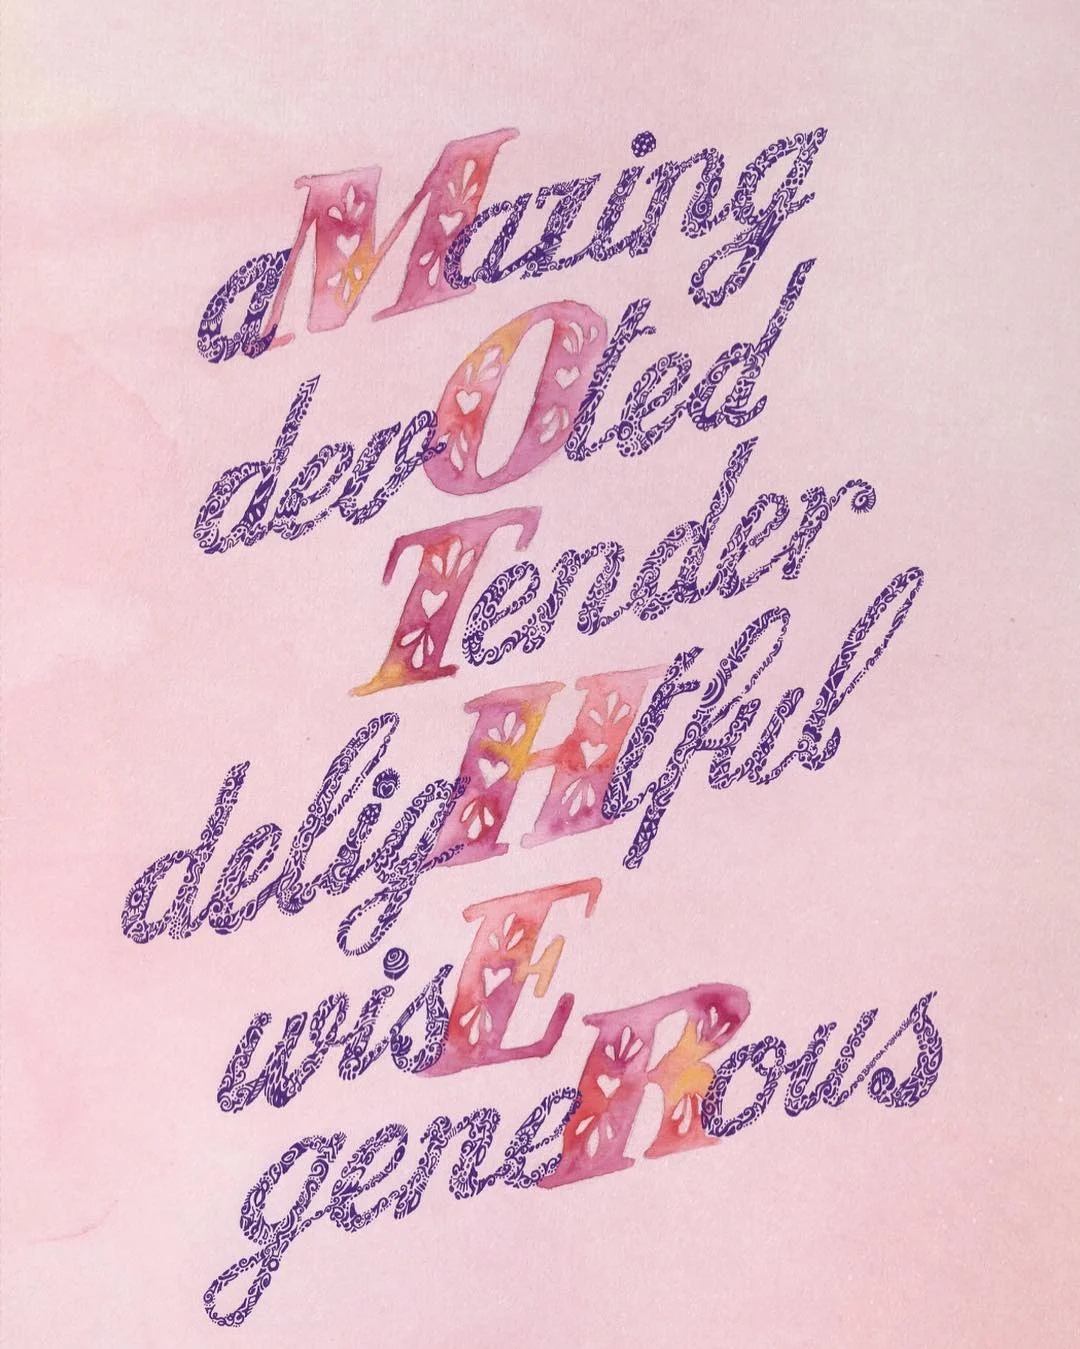 aMazing
devOted
Tender
deligHtful
wisE
geneRous